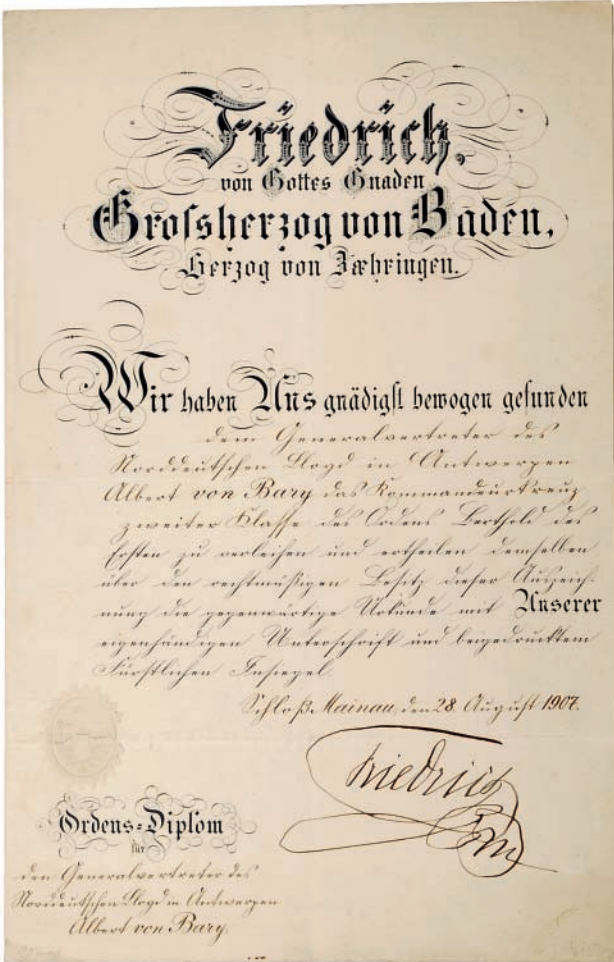 Friedrich,
von Gottes Gnaden
Grossherzog von Baden,
Herzog von Zæhringen.
Wir haben Uns gnädigst bewogen gefunden
dem Generalvertreter des
Norddeutschen Lloyd in Antwerpen
Albert von Bary das Kommandeurkreuz
zweiter Klasse des Ordens Berthold des
Ersten zu verleihen und ertheilen demselben
über den rechtmäßigen Besitz dieser Auszeich-
nung die gegenwärtige Urkunde mit Unserer
eigenhändigen Unterschrift und beigedrucktem
Fürstlichen Insiegel.
Schloß Mainau, den 28. August 1907.
Friedrich
Ordens-Diplom
für
den Generalvertreter des
Norddeutschen Lloyd in Antwerpen
Albert von Bary.